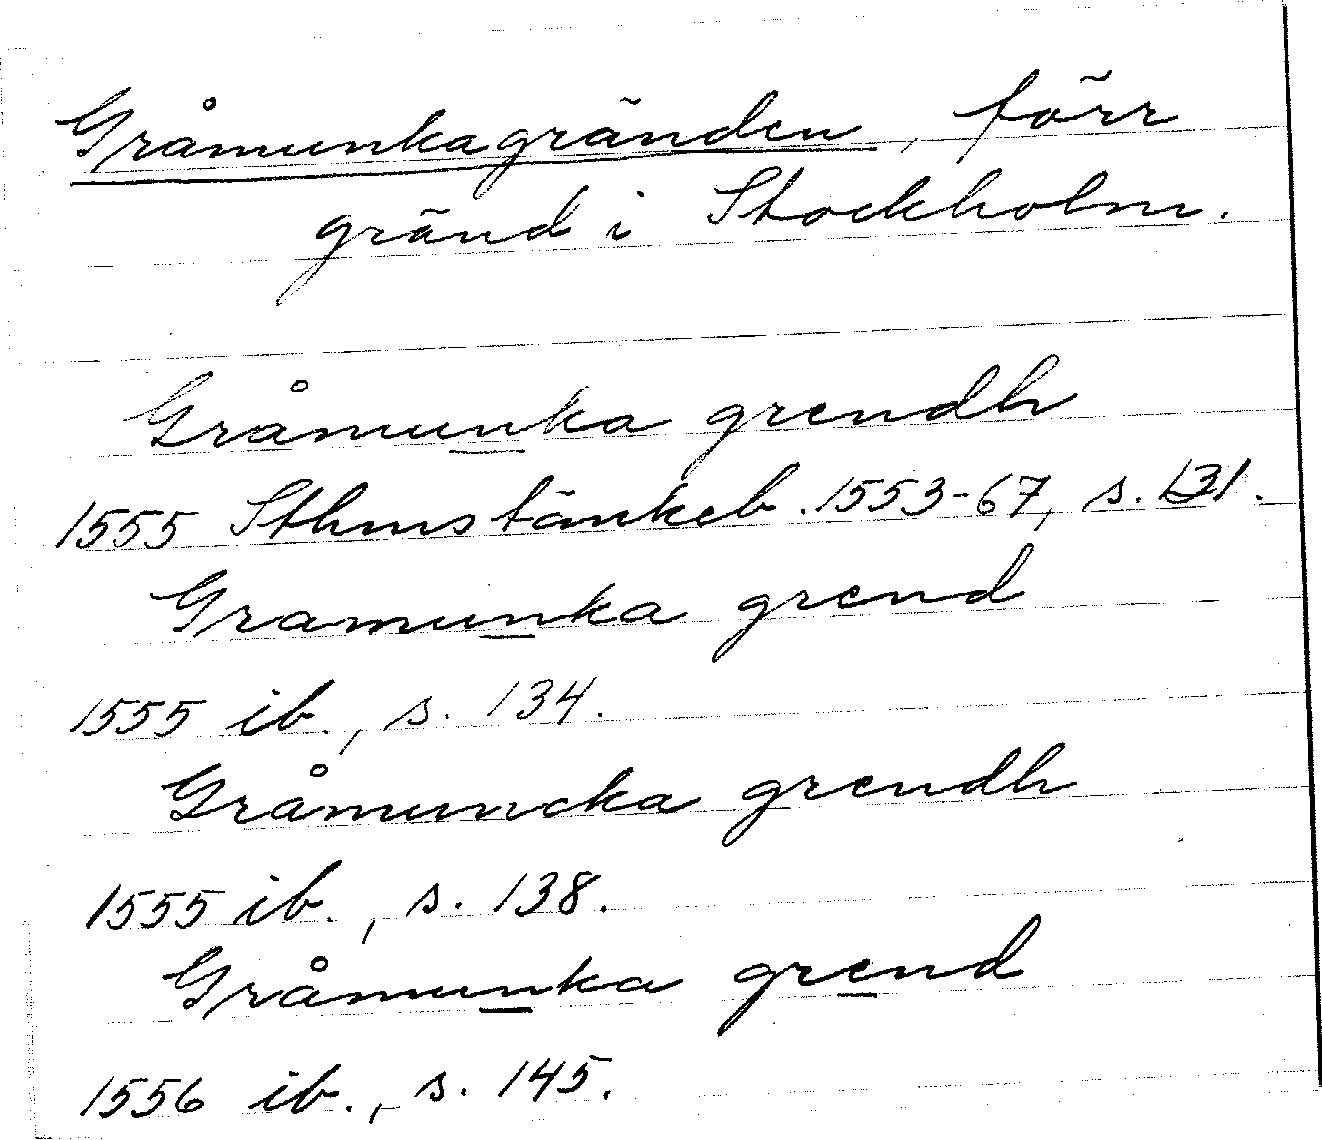 Gråmunkagränden, förr
gränd i Stockholm.
Gråmunka grendh
1555 Sthmstänkeb. 1553-67, s. 131.
Gramunka grend
1555 ib., s. 134.
Gråmuncka grendh
1555 ib., s. 138.
Gråmunka grend
1556 ib., s. 145.